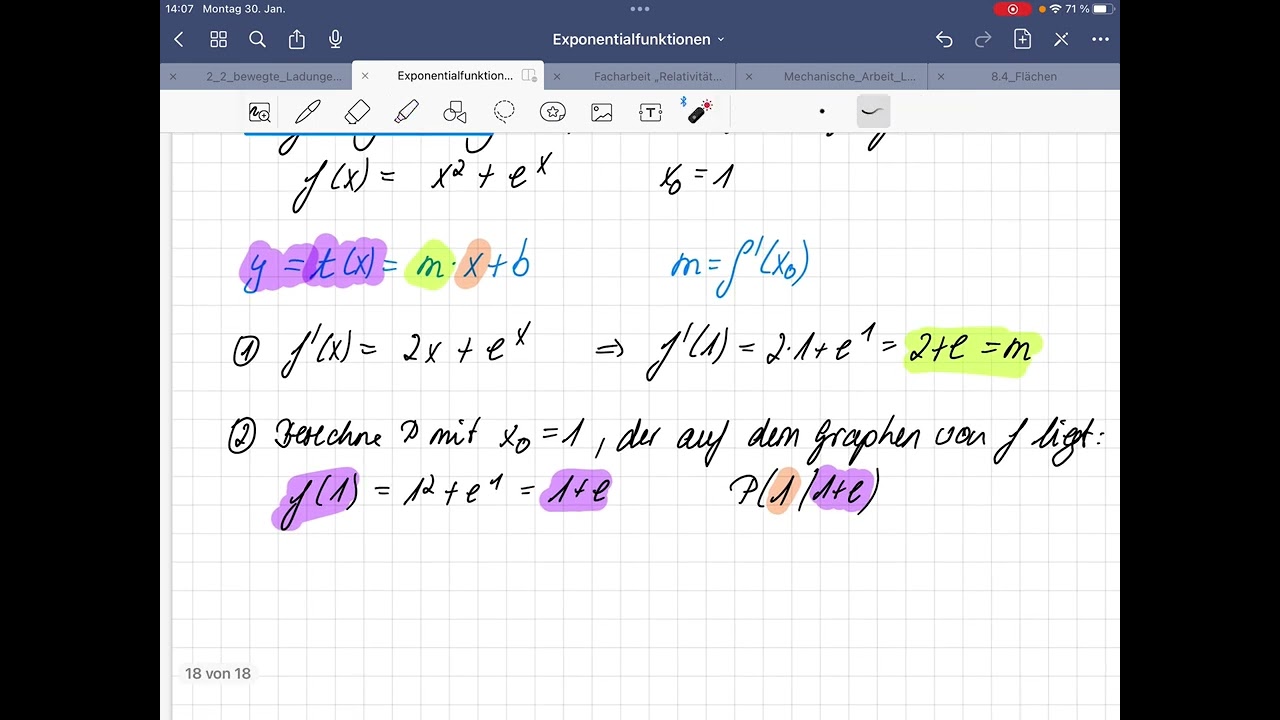 14:07 Montag 30. Jan.
71 %
Exponentialfunktionen
2_2_bewegte_Ladunge...
Exponentialfunktion...
Facharbeit „Relativität...
Mechanische_Arbeit_L...
8.4_Flächen
f(x) = x² + eˣ x₀ = 1
y = t(x) = m · x + b m = f'(x₀)
① f'(x) = 2x + eˣ ⇒ f'(1) = 2·1 + e¹ = 2+e = m
② Berechne P mit x₀ = 1, der auf dem Graphen von f liegt:
f(1) = 1² + e¹ = 1+e P(1/1+e)
18 von 18